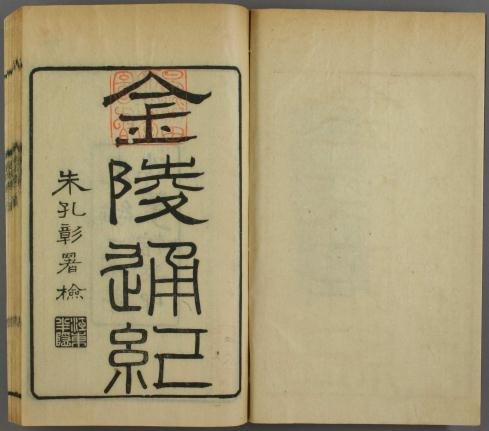 金陵通紀
朱孔彰署檢